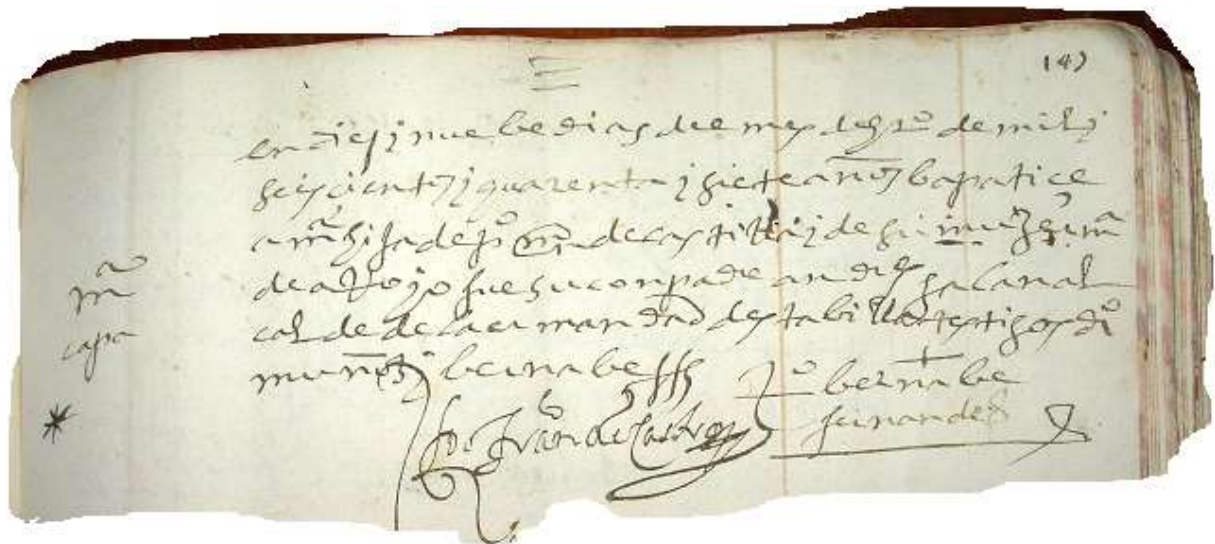 147
en diez i nuebe dias del mes de de mil i
seiscientos i quarenta i siete años bapatice
a mª hija de juº mrn de castilla i de su muger mª
de arroyo fue su conpadre andres galan al
calde de la ermandad desta billa testigos
muñoz i bernabe
mª
capa
bernabe
fernandez
frãn de Castro